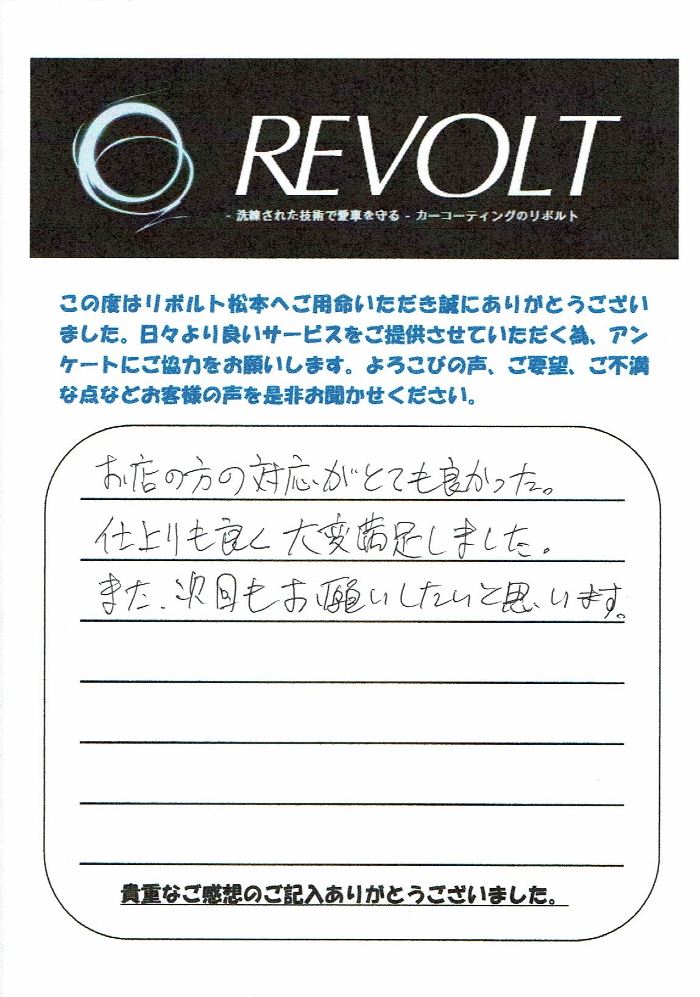 REVOLT
- 洗練された技術で愛車を守る - カーコーティングのリボルト
この度はリボルト松本へご用命いただき誠にありがとうござい
ました。日々より良いサービスをご提供させていただく為、アン
ケートにご協力をお願いします。よろこびの声、ご要望、ご不満
な点などお客様の声を是非お聞かせください。
お店の方の対応がとても良かった。
仕上りも良く大変満足しました。
また、次回もお願いしたいと思います。
貴重なご感想のご記入ありがとうございました。